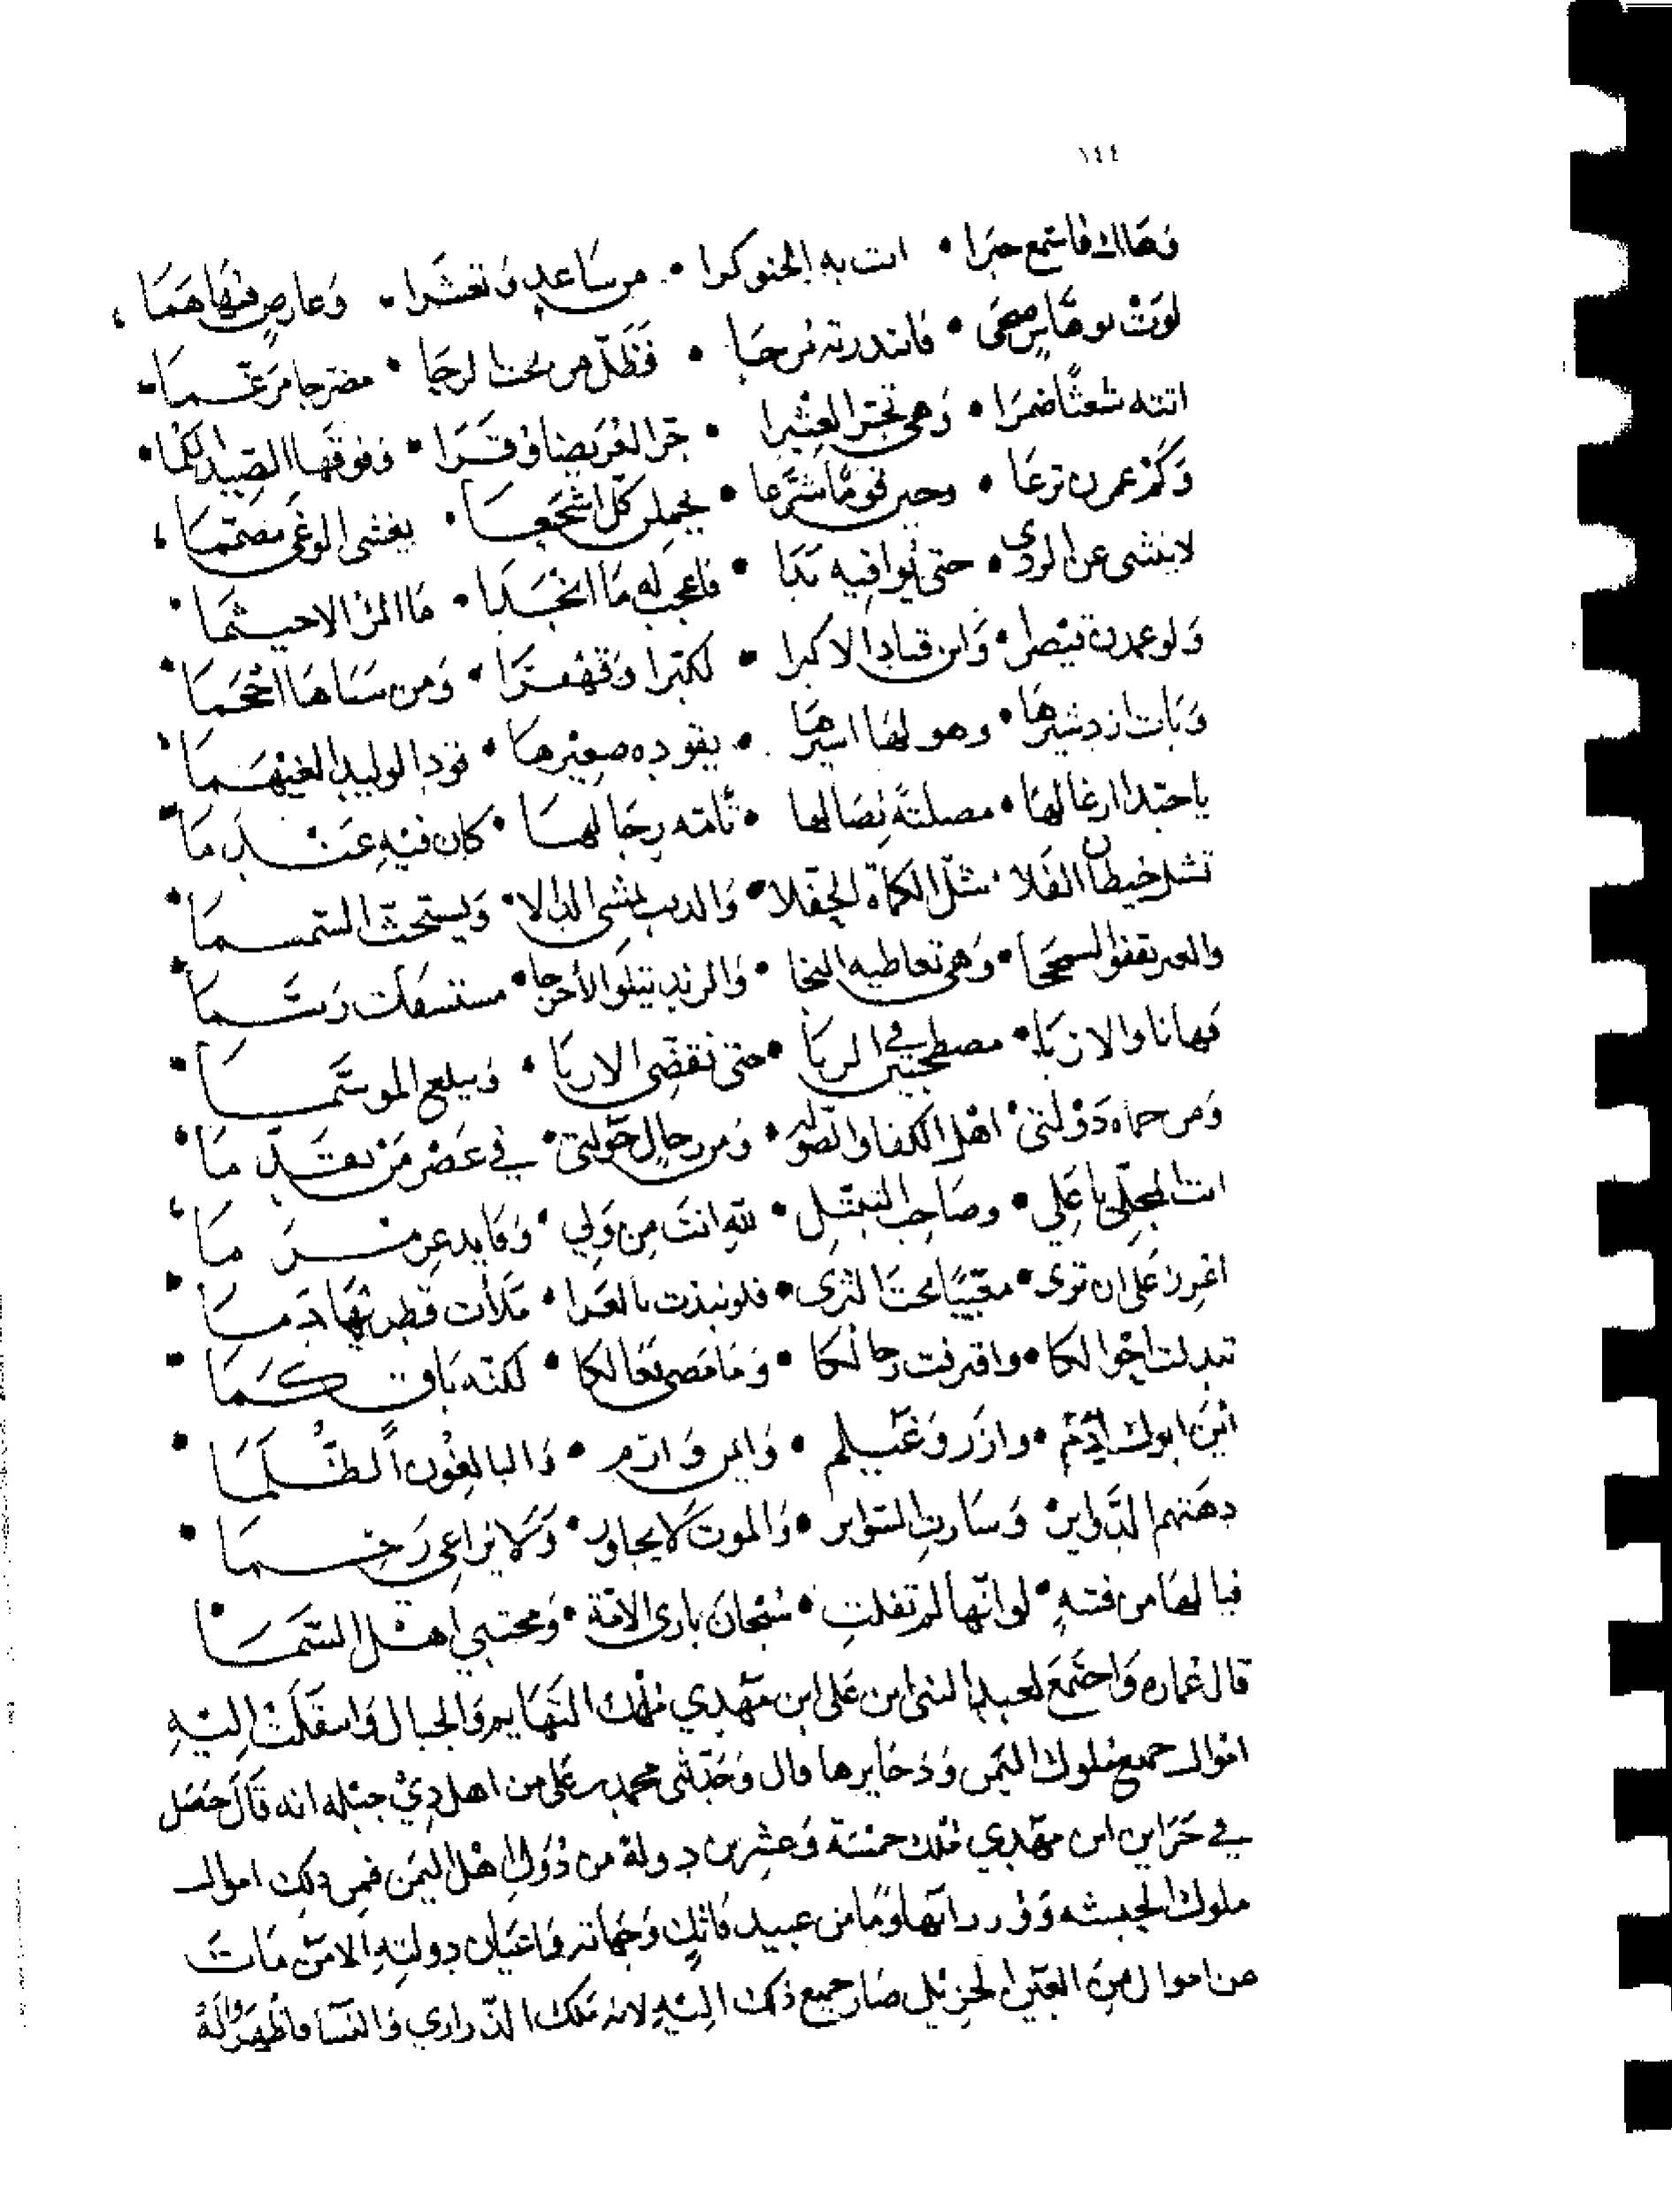 ١٤٤
وهاك فاستمع خبرا • اتت به الجن وكرا • من ساعد وتعشرا • وعارض فيها هما
لوت بوهاس ضحى • فابتدرته مرحا • فظل من تحت الرحا • مضرجا مرغما
اتته شعثا ضمرا • وهي تجر العثيرا • جر العريضا وقرا • وفوقها الصيد الكما
وكم عمرن ترعا • وحين قوما شرعا • يحملن كل اشجعا • يغشى الوغى مصمما
لا ينثني عن الردى • حتى يوافيه بدا • فاعجب له ما انجدا • ما المر الا حيثما
ولو عمدن قيصرا • ولن قباد الاكبرا • لكبرا وقهقرا • ومن سناها احجما
وبات ازدشيرها • وهو لها اسيرها • يقوده صغيرها • قود الوليد الغيهما
يا حبذا ارعالها • مصلتة نصالها • ثامته رجالها • كان فيه عندما
تشل خيطان الفلا • شل الكماة الجفلا • والذيب يمشي الدالا • ويستحث السمسما
والعير يقفوا السمحجا • وهي تعاطيه النجا • والربد يتلوا الاخرجا • مستسفلات رسما
فهانا والازبا • مصطحبين في الربا • حتى نقضي الاربا • ويبلغ الموسما
ومن حماه دولتي • اهل الكفا والصولة • ومن رجال حولتي • في عصر من تقدما
انت المجلي يا علي • وصاحب التبتل • لله انت من ولي • وقايد عرمرما
اعزز علي ان ترى • مغيبا تحت الثرى • فلو نبذت بالعرا • ملات قطريها دما
تبدلت اخوالكا • واقترفت رحالكا • وما مضى فعالكا • لكنه باق كما
اين ابوك ادم • وازر وغيلم • واين وارم • والبالغون الظلما
دهتهم الدواير • وسارت السواير • والموت لا يجاور • ولا يراعي رحما
فيا لها من فتيه • لو انها لم تفلت • سبحان باري الامة • ومجتبي اهل السما
قال عماره واجتمع لعبد النبي ابن علي ابن مهدي ملك التهايم والجبال وانتقلت اليه
اموال جميع ملوك اليمن وذخايرها قال وحدثني محمد بن علي من اهل ذي جبله انه قال حصل
في خزاين ابن مهدي ملك خمسة وعشرين دولة من دول اهل اليمن فمن ذلك اموال
ملوك الحبشه ووزرايها وما من عبيد فاتك وجهاته واعيان دولته الا من مات
عن اموال من العين الجزيل صار جميع ذلك اليه لانه ملك الذراري والنسا فاظهروا له